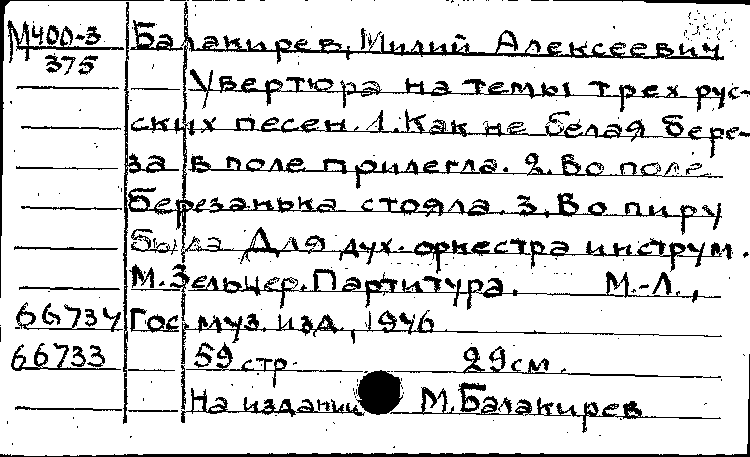 М400-3 Балакирев, Милий Алексеевич
375
Увертюра на темы трех рус-
ских песен. 1. Как не белая бере-
за в поле прилегла. 2. Во поле
березанька стояла. 3. Во пиру
была Для дух. оркестра инструм.
М. Зельцер. Партитура. М.-Л.,
66734 Гос. муз. изд., 1946
66733 59 стр. 29 см.
На издании М. Балакирев